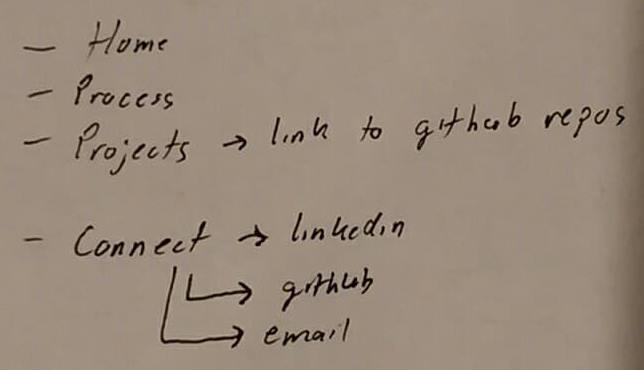 - Home
- Process
- Projects → link to github repos
- Connect → linkedin
→ github
→ email